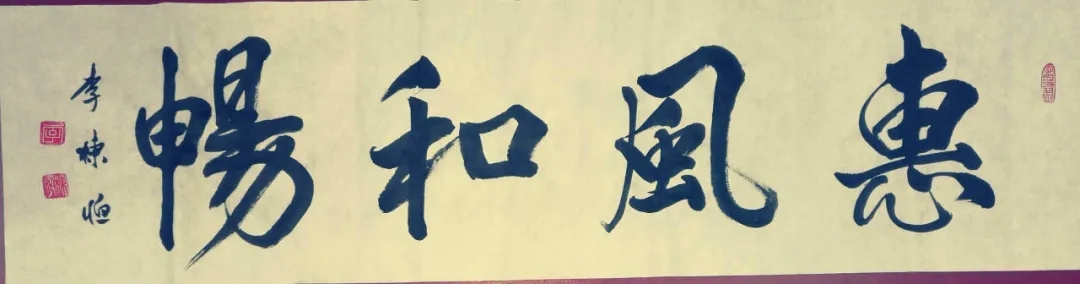 惠風和暢
李棟恒